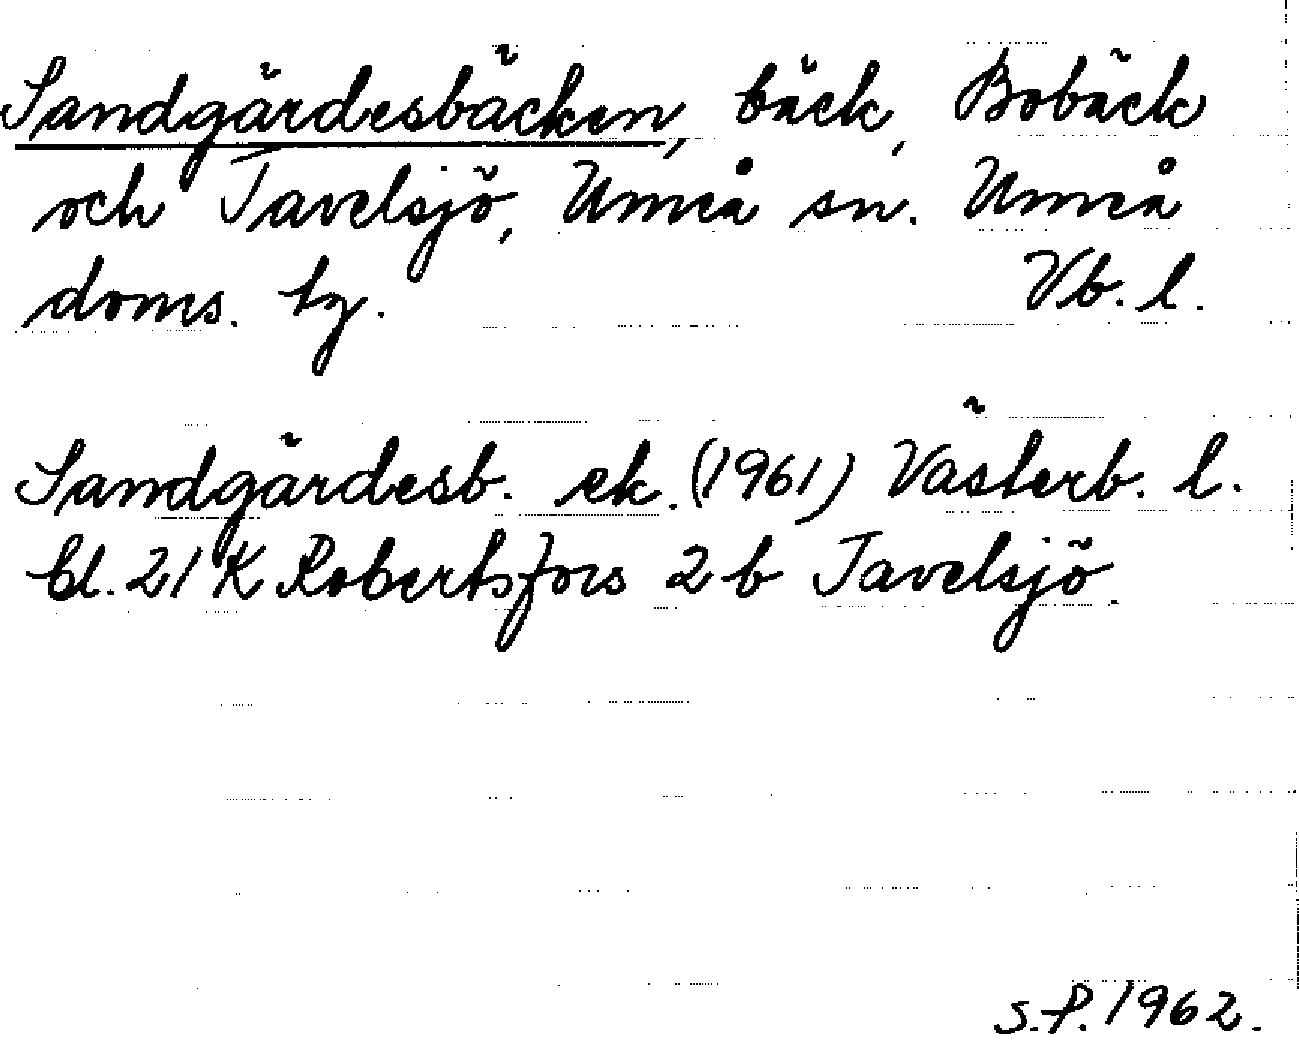 Sandgärdesbäcken, bäck, Bobäck
och Tavelsjö, Umeå sn. Umeå
doms. tg. Vb. l.
Sandgärdesb. ek. (1961) Västerb. l.
bl. 21 K Robertsfors 2 b Tavelsjö.
S.P. 1962.